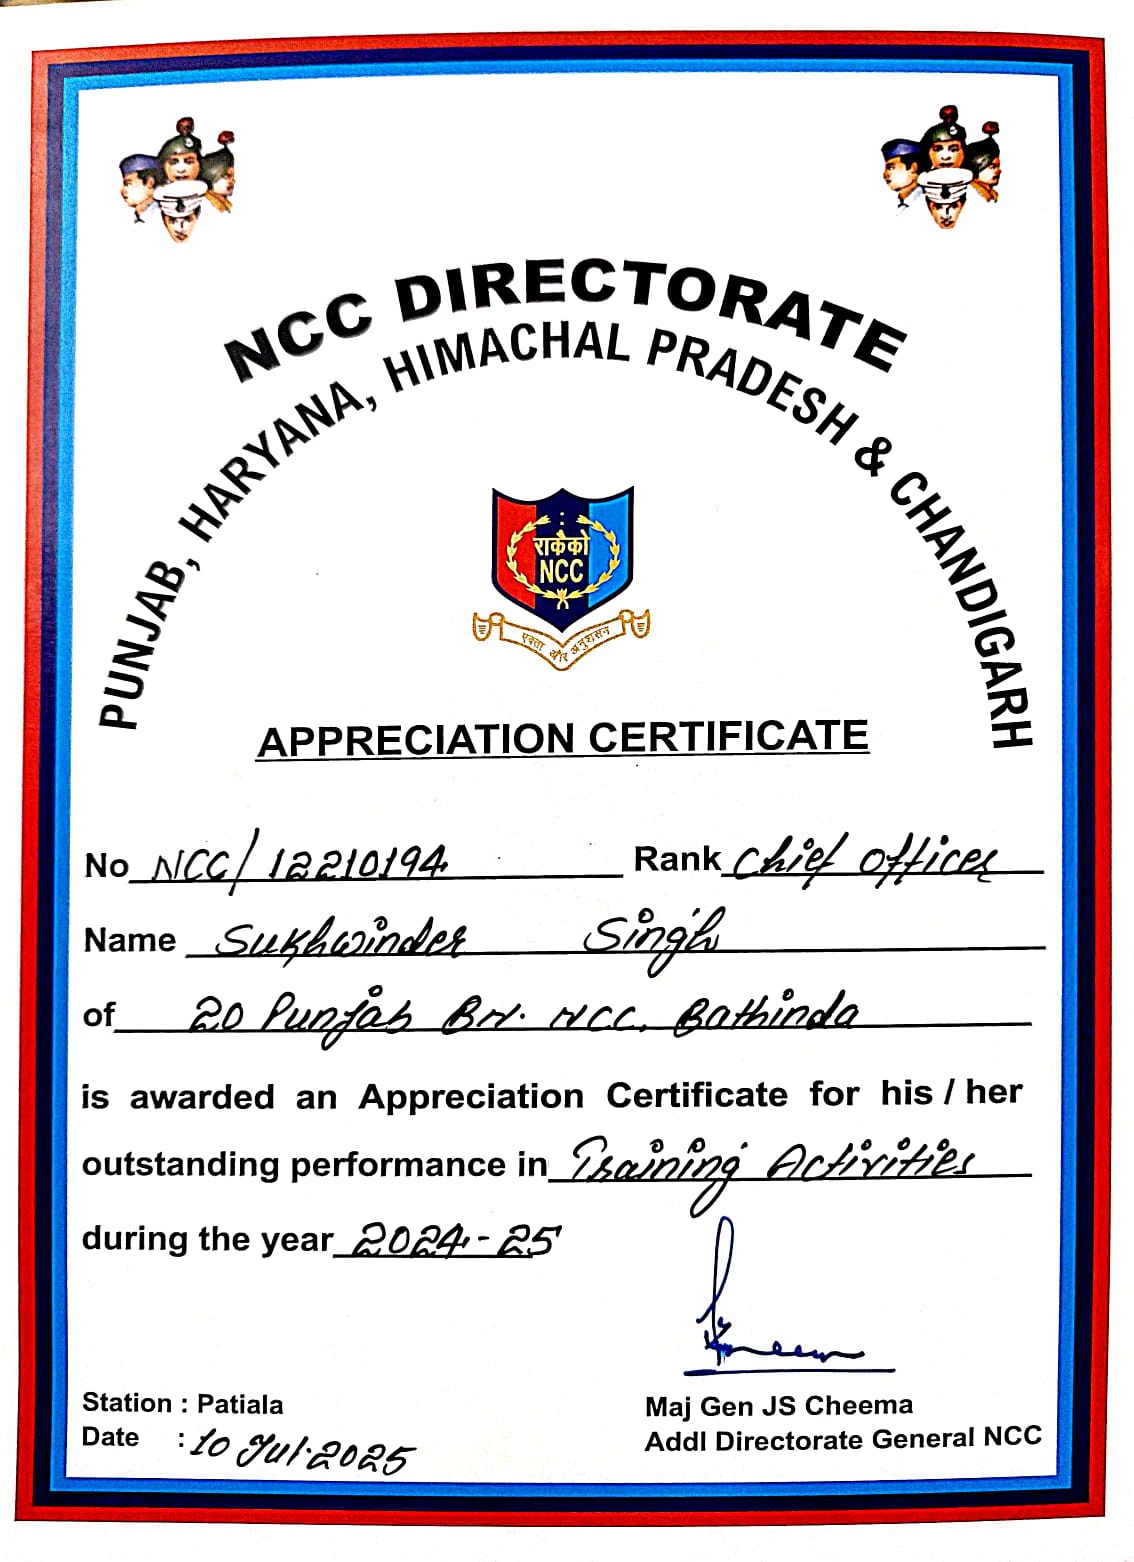 NCC DIRECTORATE
PUNJAB, HARYANA, HIMACHAL PRADESH & CHANDIGARH
राकैको
NCC
एकता और अनुशासन
APPRECIATION CERTIFICATE
No NCC/12210194 Rank Chief Officer
Name Sukhwinder Singh
of 20 Punjab BN. NCC, Bathinda
is awarded an Appreciation Certificate for his / her
outstanding performance in Training Activities
during the year 2024-25
Station : Patiala
Date : 10 Jul. 2025
Maj Gen JS Cheema
Addl Directorate General NCC